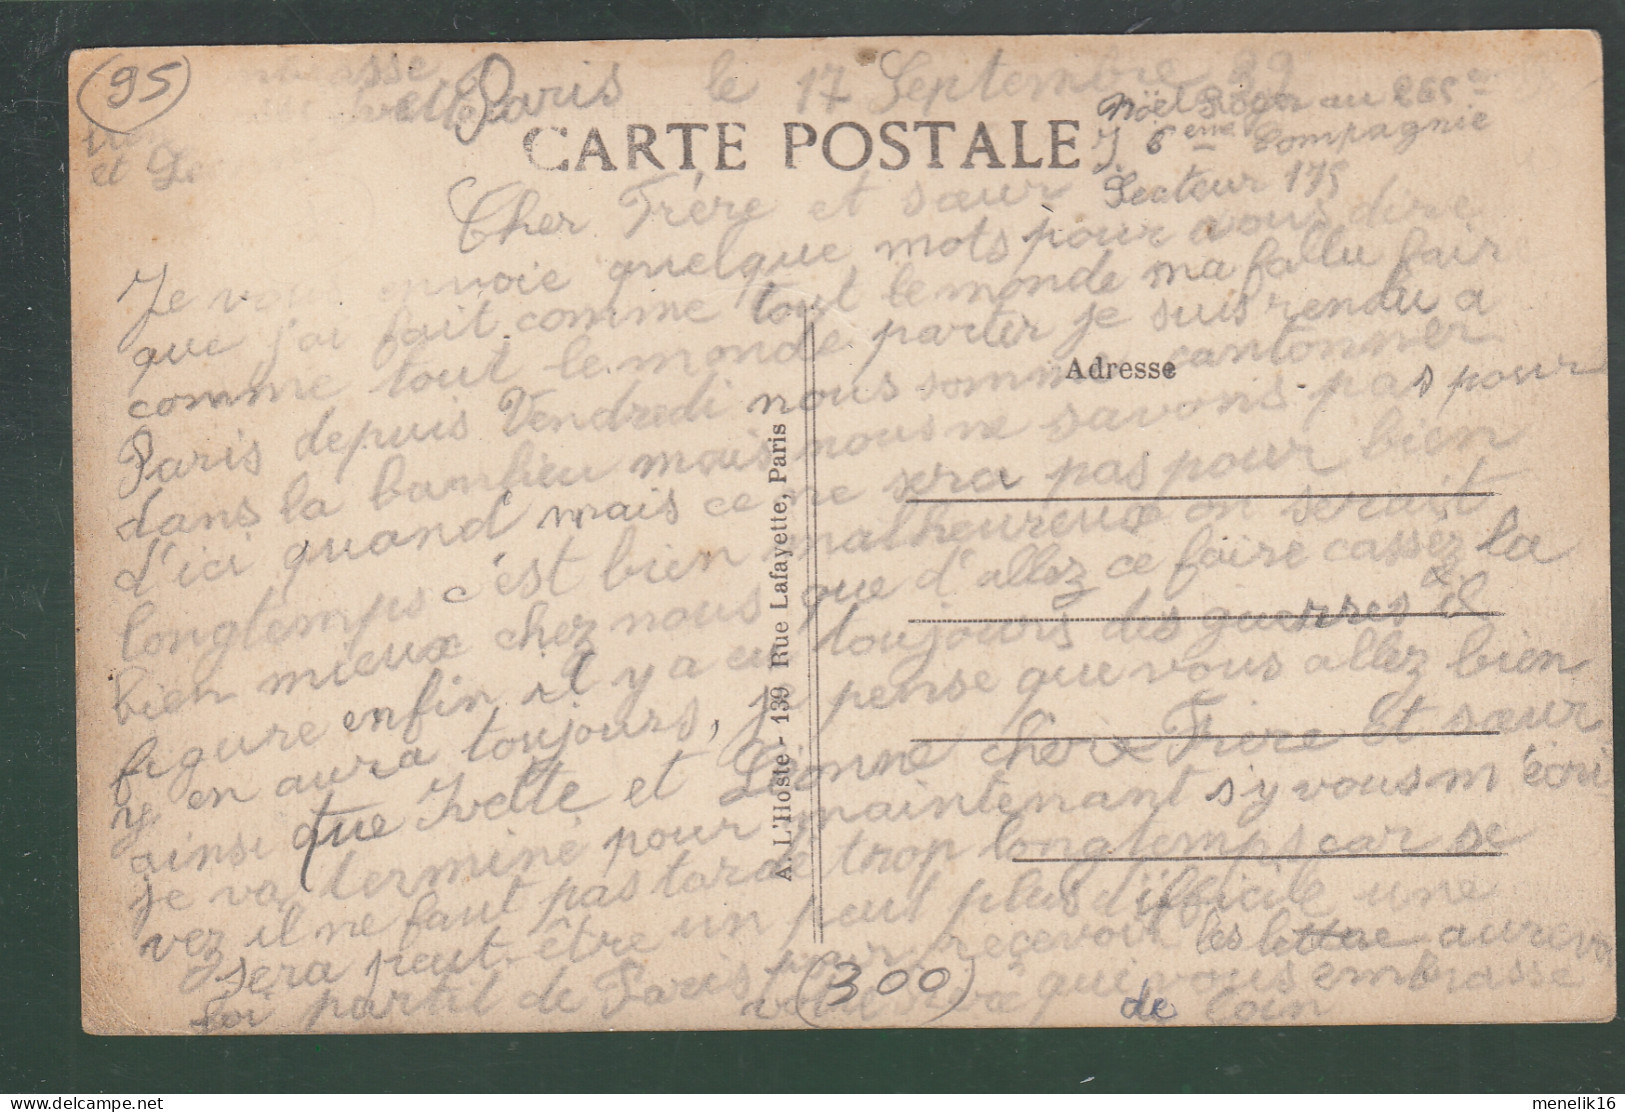 (95)
embrasse
et
Paris le 17 Septembre 39
CARTE POSTALE
Noël Roger au 265 eme
6 eme Compagnie
Secteur 175
Cher Frère et sœur
Je vous envoie quelque mots pour vous dire
que j'ai fait comme tout le monde ma fallu fair
comme tout le monde partir je suis rendu a
Paris depuis Vendredi nous somme cantonner
dans la banlieu mais nous ne savons pas pour
d'ici quand mais ce ne sera pas pour bien
longtemps c'est bien malheureux on serait
bien mieux chez nous que d'allez ce faire cassez la
figure enfin il y a eu toujours des guerres & il
y en aura toujours, je pense que vous allez bien
ainsi que Ivette et Léonne cher Frère et sœur
je vas terminé pour maintenant s'y vous m'écri
vez il ne faut pas tarde trop longtemps car se
sera peut-être un peut plus difficile une
foi partit de Paris pour reçevoir les lettre aurevoir
votre qui vous embrasse
de loin
Adresse
A. L'Hoste - 139 Rue Lafayette, Paris
(300)
menelik16